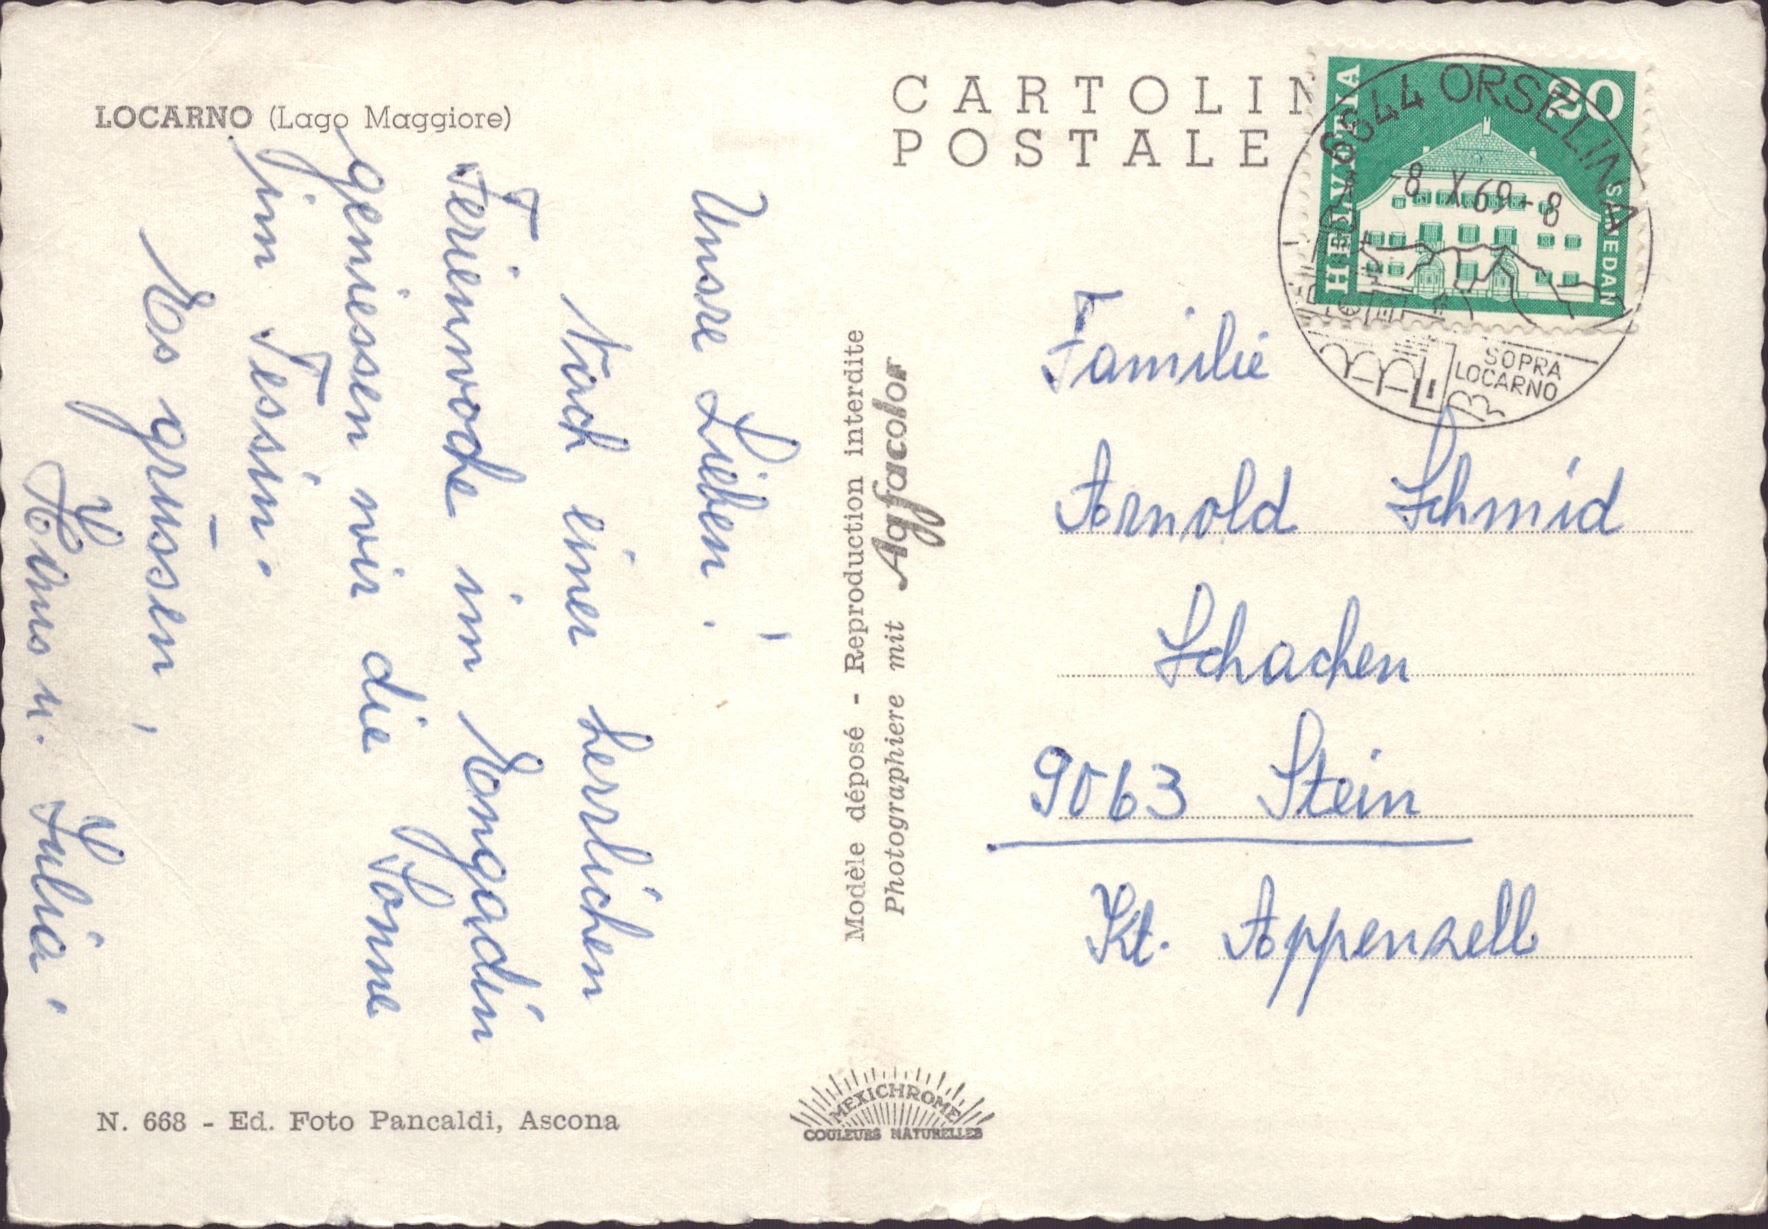 LOCARNO (Lago Maggiore)
CARTOLIN
POSTALE
HELVETIA
20
SAMEDAN
6644 ORSELINA
-8.X.69-8
SOPRA
LOCARNO
Unsre Lieben!
Nach einer herrlichen
Ferienwoche im Engadin
geniessen wir die Sonne
im Tessin.
Es grüssen,
Heins u. Julia.
Modèle déposé - Reproduction interdite
Photographiere mit Agfacolor
Familie
Arnold Schmid
Schachen
9063 Stein
Kt. Appenzell
N. 668 - Ed. Foto Pancaldi, Ascona
MEXICHROME
COULEURS NATURELLES